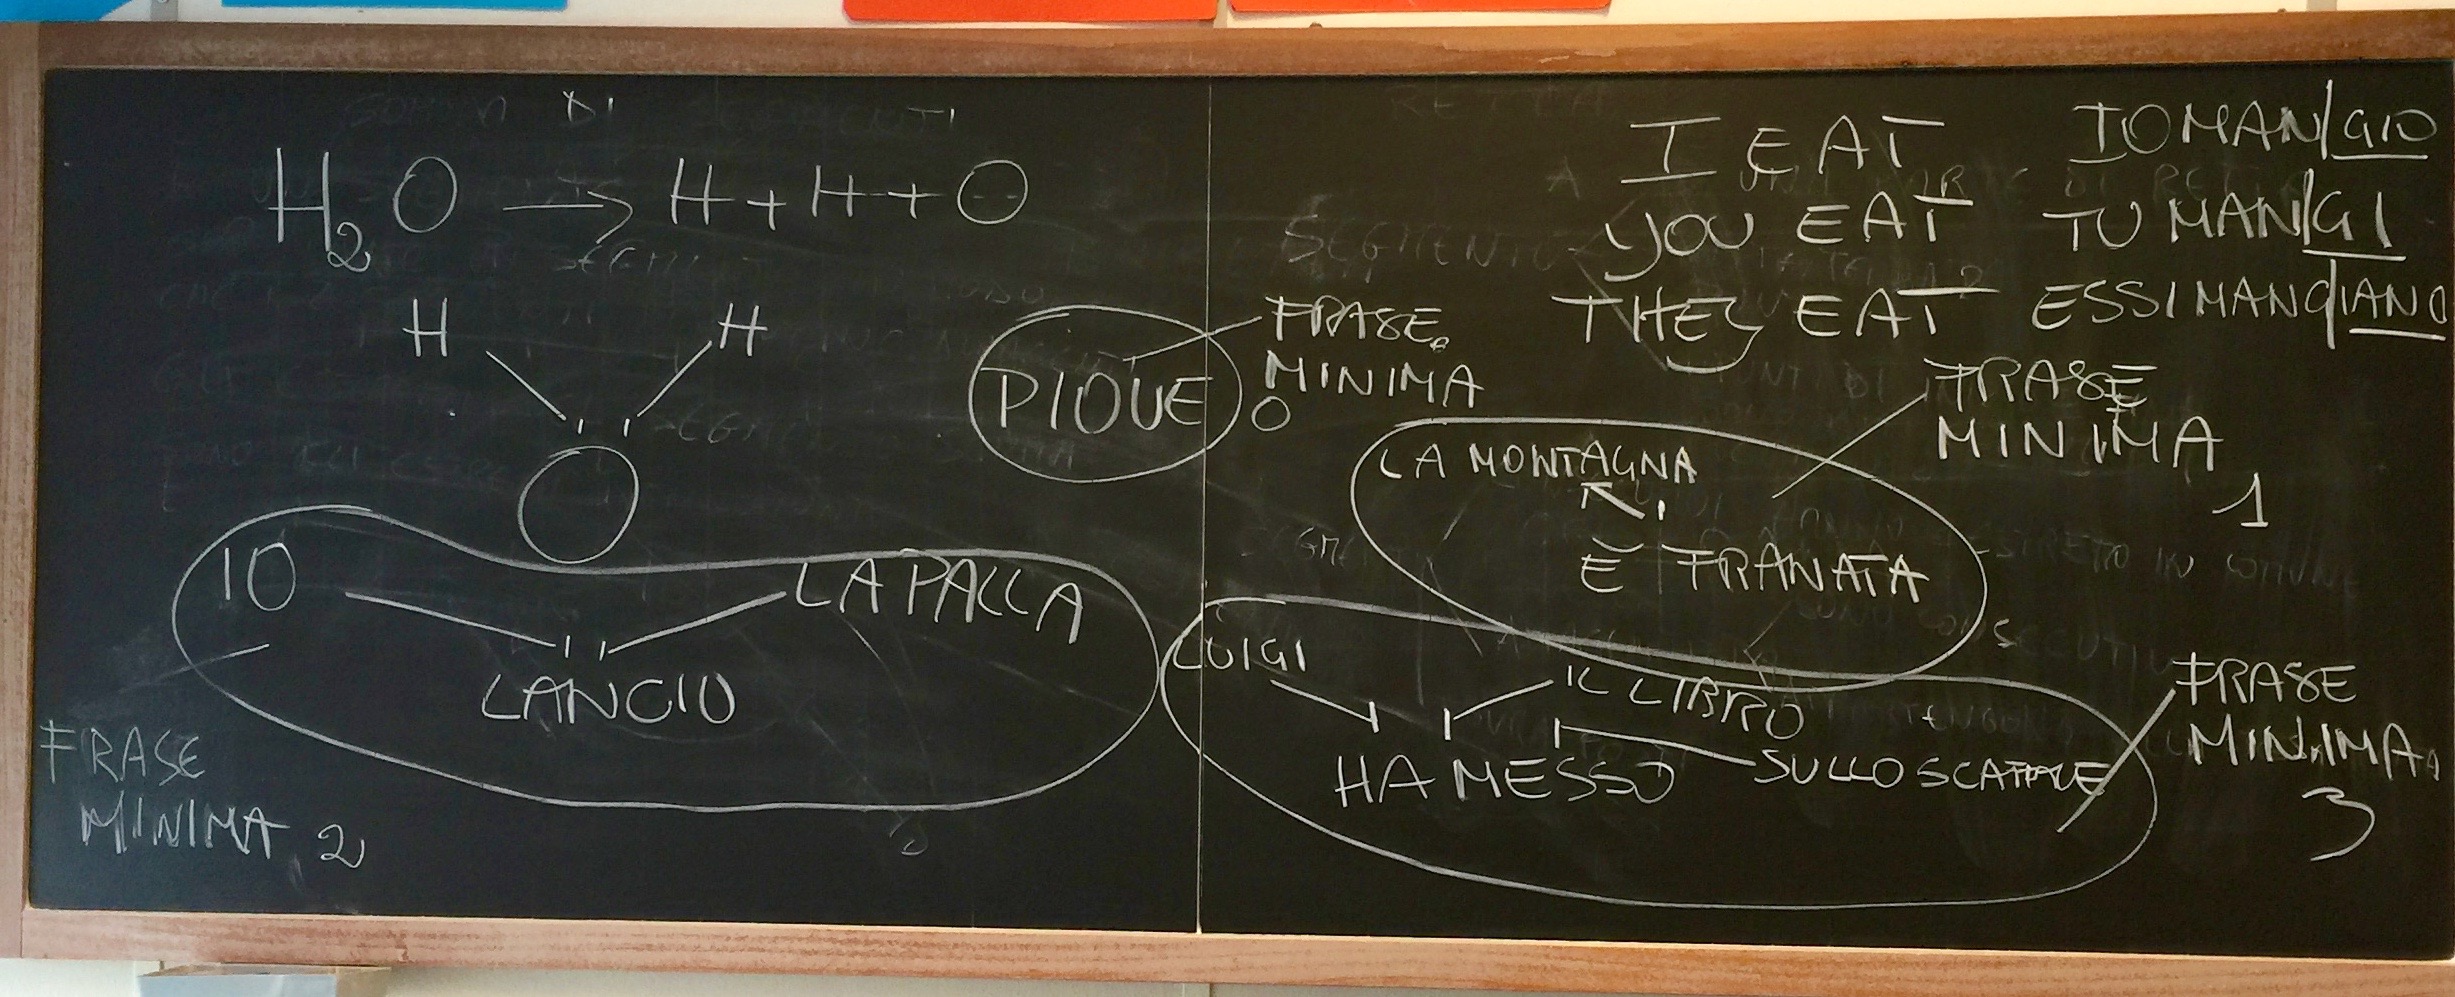 H2O → H + H + O
H H
O
PIOVE
FRASE
MINIMA
0
IO LA PALLA
LANCIO
FRASE
MINIMA 2
I EAT IO MAN|GIO
YOU EAT TU MAN|GI
THEY EAT ESSI MANG|IANO
FRASE
MINIMA
1
LA MONTAGNA
È FRANATA
LUIGI IL LIBRO
HA MESSO SULLO SCAFFALE
FRASE
MINIMA
3